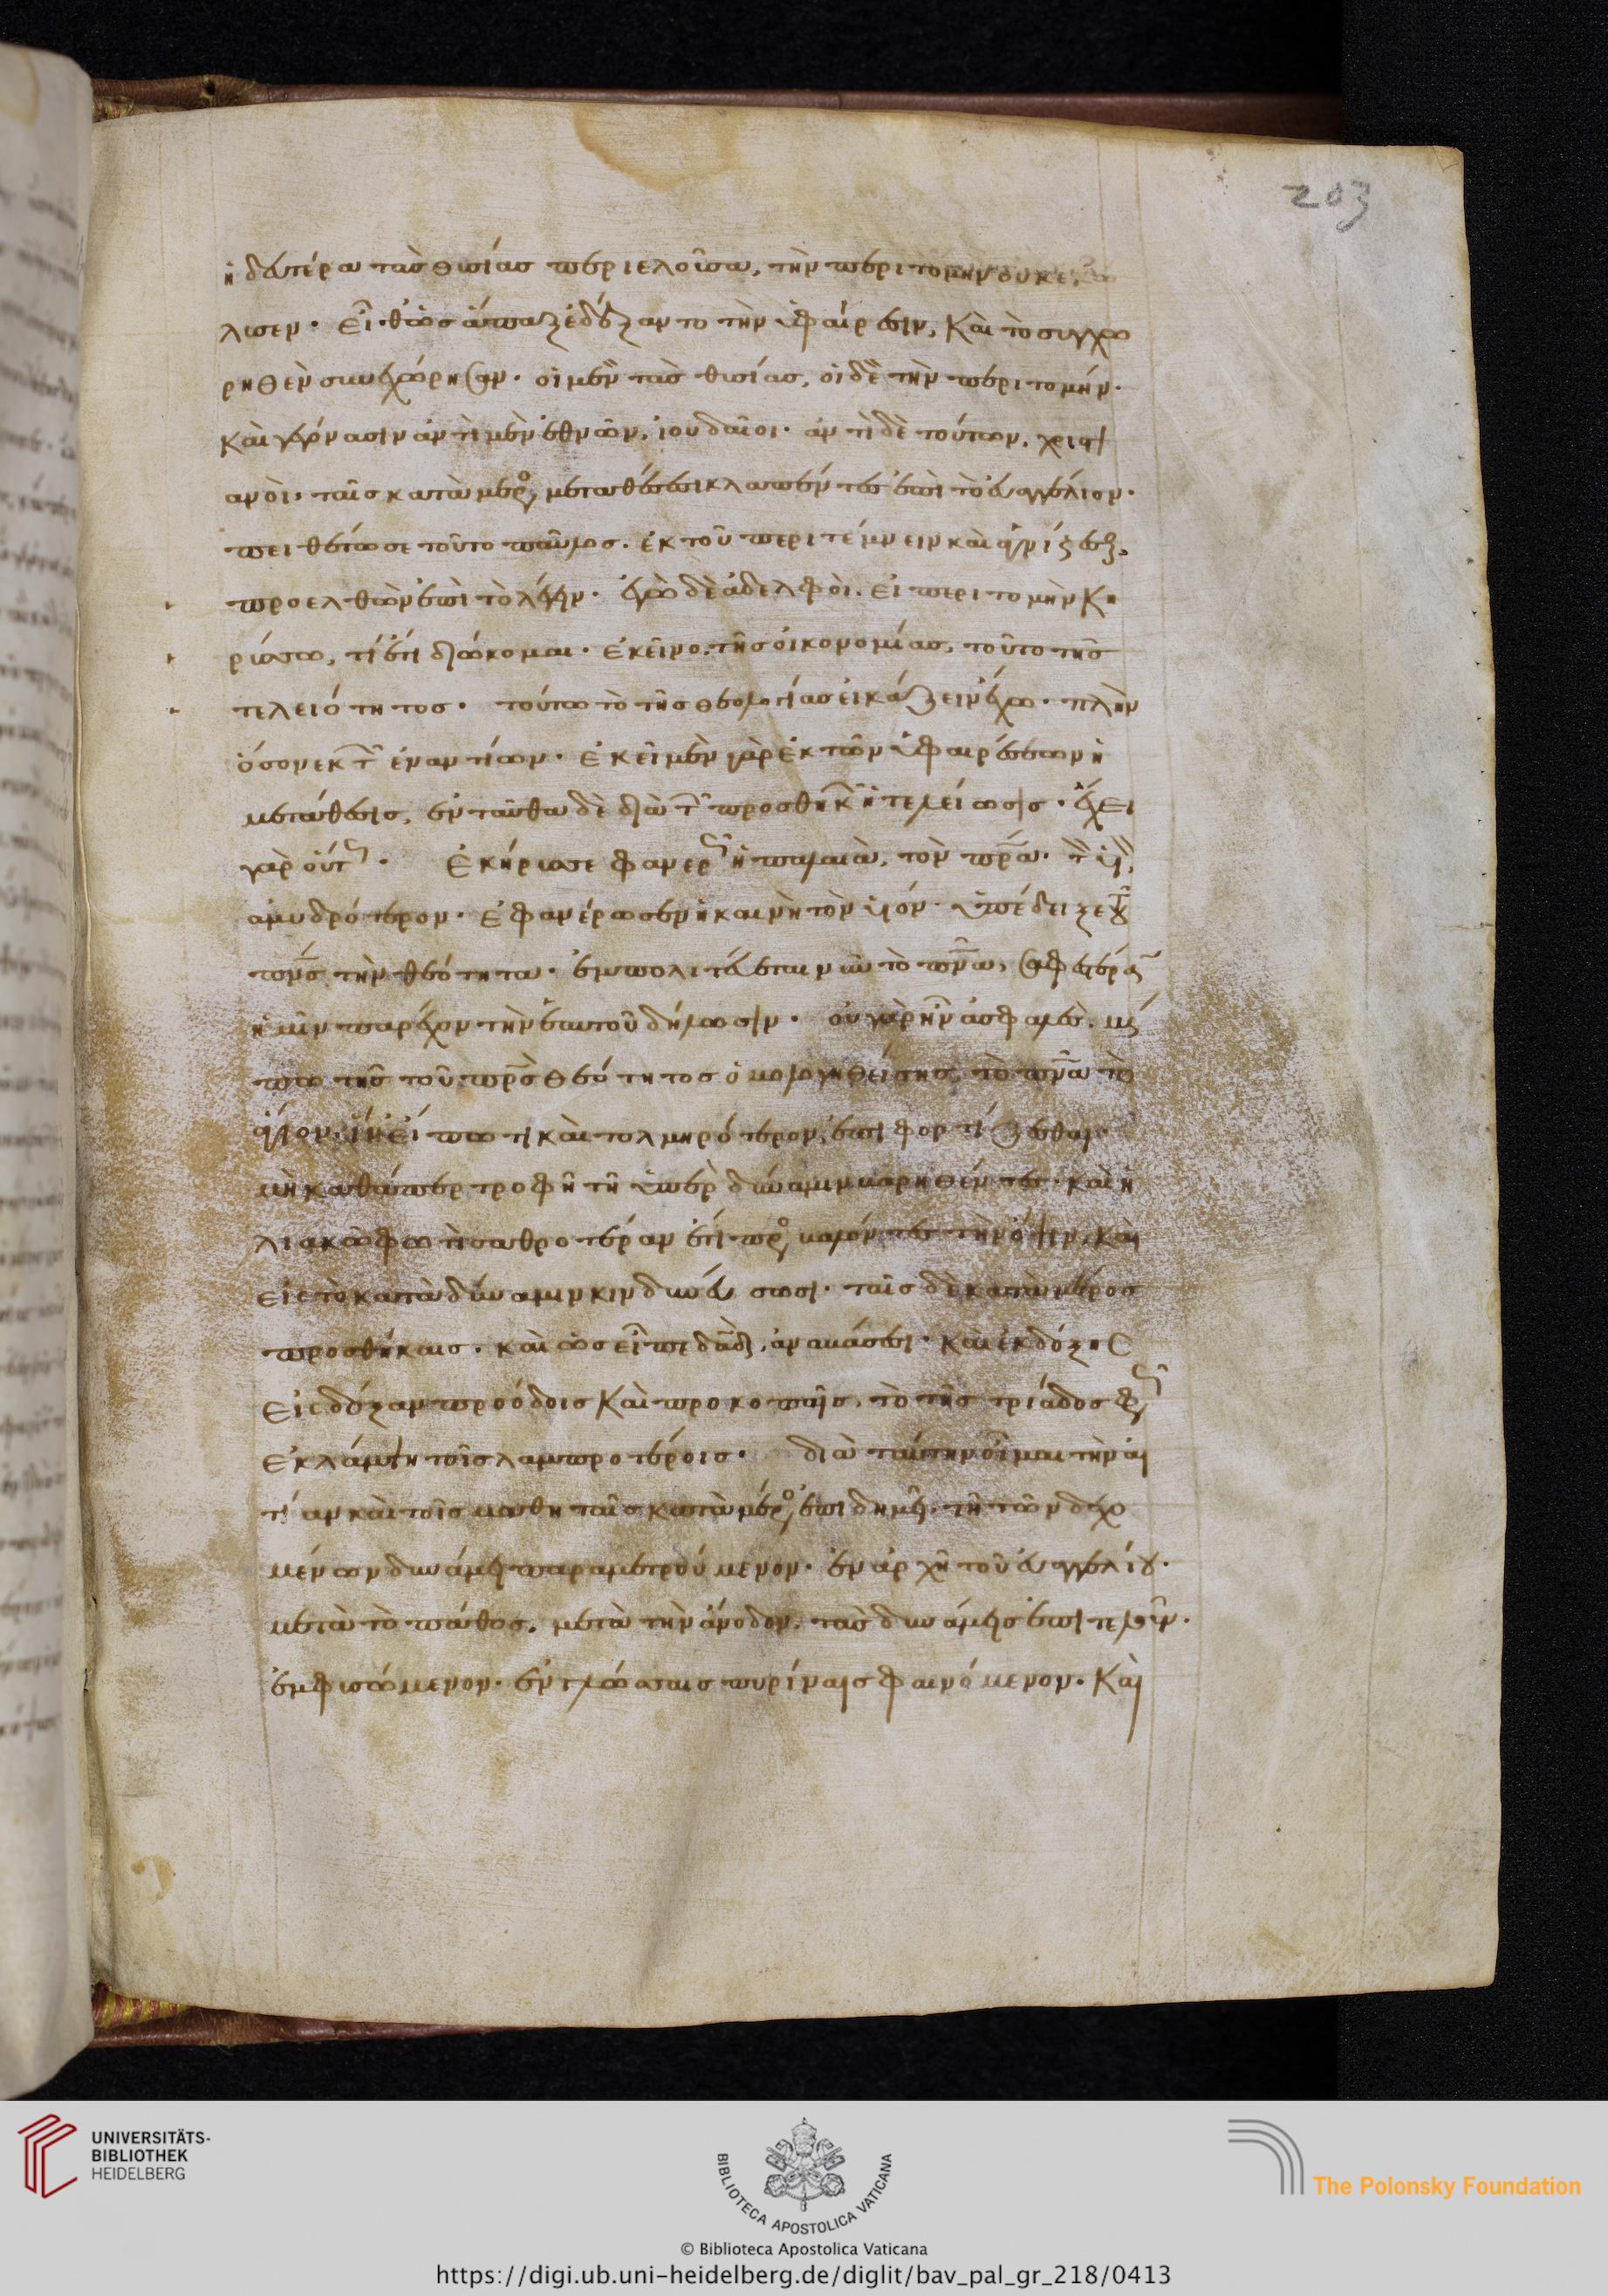 ἡ δευτέρα τὰς θυσίας περιελοῦσα, τὴν περιτομὴν οὐκ ἐκώ
λυσεν· εἶθ' ὡς ἅπαξ ἐδέξαντο τὴν ὑφαίρεσιν, καὶ τὸ συγχω
ρηθὲν συνεχώρησαν· οἱ μὲν τὰς θυσίας, οἱ δὲ τὴν περιτομήν·
καὶ γεγόνασιν ἀντὶ μὲν ἐθνῶν, ἰουδαῖοι· ἀντὶ δὲ τούτων, χριστι
ανοὶ· ταῖς κατὰ μέρος μεταθέσεσι κλαπέντες ἐπὶ τὸ εὐαγγέλιον·
πειθέτω σε τοῦτο παῦλος· ἐκ τοῦ περιτέμνειν καὶ ἁγνίζεσθαι,
προελθὼν ἐπὶ τὸ λέγειν· ἐγὼ δὲ ἀδελφοὶ· εἰ περιτομὴν κη
ρύσσω, τί ἔτι διώκομαι· ἐκεῖνο, τῆς οἰκονομίας, τοῦτο τῆς
τελειότητος· τούτω τὸ τῆς θεολογίας εἰκάζειν ἔχω· πλὴν
ὅσον ἐκ τῶν ἐναντίων· ἐκεῖ μὲν γὰρ ἐκ τῶν ὑφαιρέσεων ἡ
μετάθεσις, ἐνταῦθα δὲ διὰ τῶν προσθηκῶν ἡ τελείωσις· ἔχει
γὰρ οὕτως· ἐκήρυσσε φανερῶς ἡ παλαιὰ, τὸν πρα· τὸν υἱὸν,
ἀμυδρότερον· ἐφανέρωσεν ἡ καινὴ τὸν υἱόν· ὑπέδειξε τοῦ
πνς τὴν θεότητα· ἐμπολιτεύεται νῦν τὸ πνα, σαφεστέραν
ἡμῖν παρέχον τὴν ἑαυτοῦ δήλωσιν· οὐ γὰρ ἦν ἀσφαλὲς, μή
πω τῆς τοῦ πρς θεότητος ὁμολογηθείσης, τὸ πνα τὸ
ἅγιον, ἵν' εἴπω τι καὶ τολμηρότερον, ἐπιφορτίζεσθαι·
μὴ καθάπερ τροφῆ τῆ ὑπὲρ δύναμιν βαρηθέντες· καὶ ἡ
λιακῶ φωτὶ σαθροτέραν ἔτι προσβαλόντες τὴν ὄψιν, καὶ
εἰς τὸ κατὰ δύναμιν κινδυνεύσωσι· ταῖς δὲ κατὰ μέρος
προσθήκαις· καὶ ὡς εἶπε δαδ, ἀναβάσεσι· καὶ ἐκ δόξης
εἰς δόξαν προόδοις καὶ προκοπαῖς, τὸ τῆς τριάδος φῶς
ἐκλάμψη τοῖς λαμπροτέροις· διὰ ταύτην οἶμαι τὴν αἰ
τίαν καὶ τοῖς μαθηταῖς κατὰ μέρος ἐπιδημεῖ, τῆ τῶν δεχο
μένων δυνάμει παραμετρούμενον· ἐν ἀρχῆ τοῦ εὐαγγελίου·
μετὰ τὸ πάθος, μετὰ τὴν ἄνοδον, τὰς δυνάμεις ἐπιτελοῦν·
ἐμφυσώμενον· ἐν γλώσσαις πυρίναις φαινόμενον· καὶ
203
UNIVERSITÄTS-
BIBLIOTHEK
HEIDELBERG
BIBLIOTECA APOSTOLICA VATICANA
The Polonsky Foundation
© Biblioteca Apostolica Vaticana
https://digi.ub.uni-heidelberg.de/diglit/bav_pal_gr_218/0413